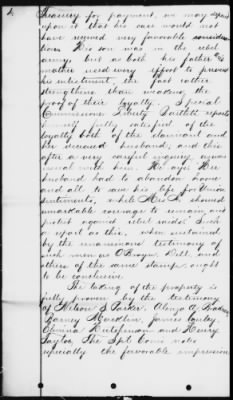 Treasury for payment, we may depend
upon it that his case would not
have received very favorable consideration
His son was in the rebel
army, but as both his father and
mother used every effort to prevent
his enlistment, the fact rather
strengthens than weakens the
proof of their loyalty. Special
Commissioner reports
himself fully satisfied of the
loyalty both of the claimant and
her deceased husband, and this
after a very careful inquiry
with him. He says Her
husband had to abandon home
and all to save his life for Union
sentiments, while Mrs. showed
remarkable courage to remain and
protest against rebel raids. Such
a report as this, when sustained
by the unanimous testimony of
such men as Bryant Bell, and
others of the same stamp ought
to be conclusive.
The taking of the property is
fully proven by the testimony
of Nelson S. Parker, Alonzo A.
Barney James
and Henry
Taylor. The Spl. Com'r notes
especially the favorable impression